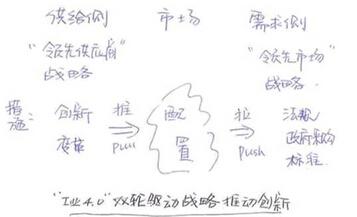 供给侧 市场 需求侧
"领先供应商" "领先市场"
战略 战略
措施: 创新 推 配 拉 法规
变革 pull 置 push 政府采购
标准
"工业4.0"双轮驱动战略推动创新